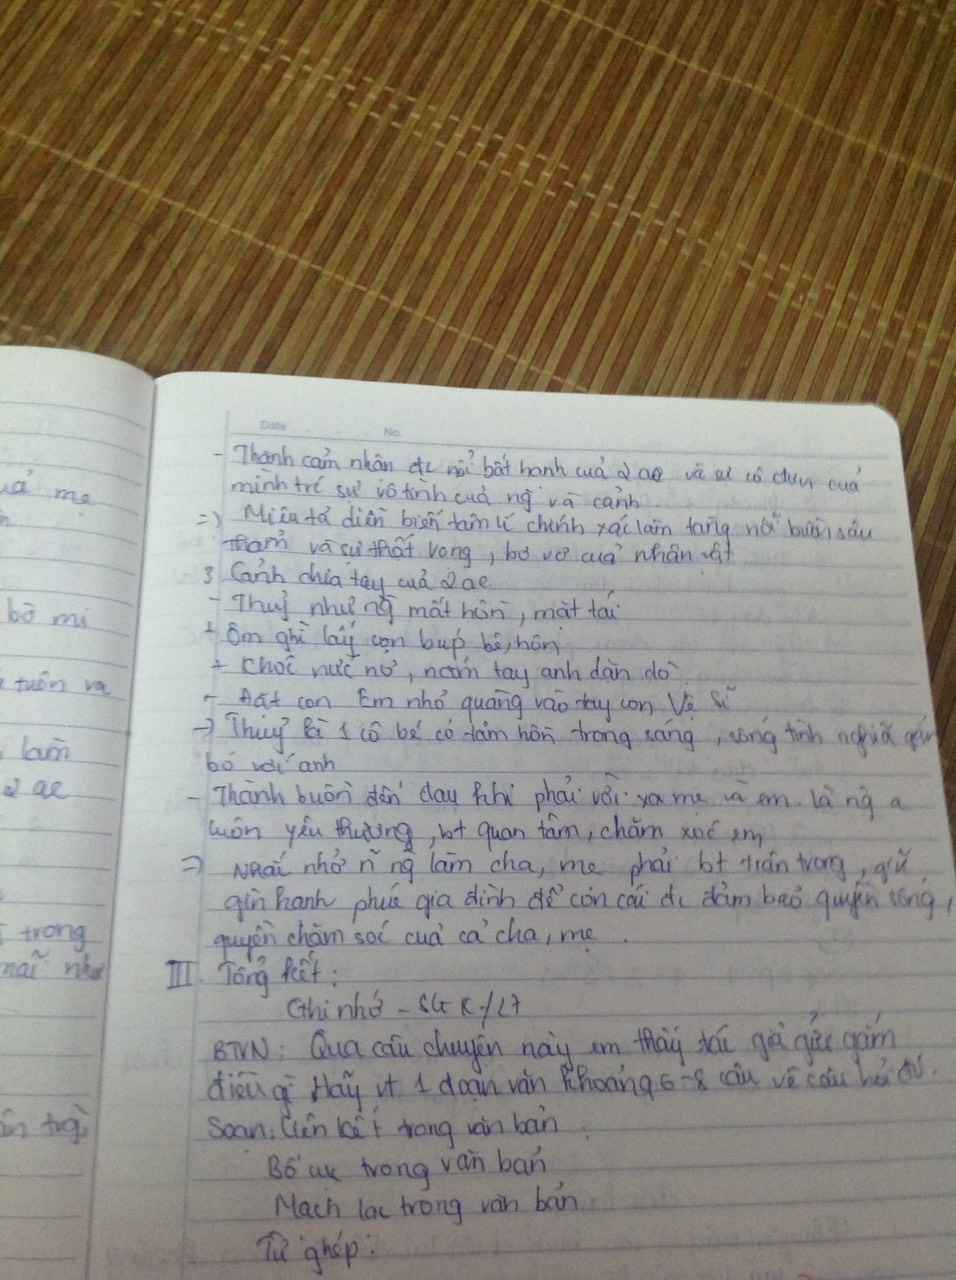 uả mẹ
bờ mi
tuôn ra
2 ae
trong
mãi như
Date No.
- Thành cảm nhận đc nỗi bất hạnh của 2 ae và sự cô đơn của
mình trc sự vô tình của ng và cảnh
=> Miêu tả diễn biến tâm lí chính xác làm tăng nỗi buồn sâu
thẳm và sự thất vọng, bơ vơ của nhân vật
3 Cảnh chia tay của 2 ae
- Thuỷ như ng mất hồn, mặt tái
+ Ôm ghì lấy con búp bê, hôn
+ Khóc nức nở, nắm tay anh dặn dò
- Đặt con Em nhỏ quàng vào tay con Vệ Sĩ
=> Thuỷ là 1 cô bé có tâm hồn trong sáng, sống tình nghĩa gắn
bó với anh
- Thành buồn đến day khi phải với xa mẹ và em. Là ng a
luôn yêu thương, bt quan tâm, chăm xóc em
=> Nhắc nhở n~ ng làm cha, mẹ phải bt trân trọng, giữ
gìn hạnh phúc gia đình để con cái đc đảm bảo quyền sống,
quyền chăm sóc của cả cha, mẹ.
III. Tổng kết:
Ghi nhớ - SGK /27
BTVN: Qua câu chuyện này em thấy tác giả gửi gắm
điều gì Hãy vt 1 đoạn văn khoảng 6-8 câu về câu hỏi đó.
Soạn: Liên kết trong văn bản
Bố cục trong văn bản
Mạch lạc trong văn bản
Từ ghép.